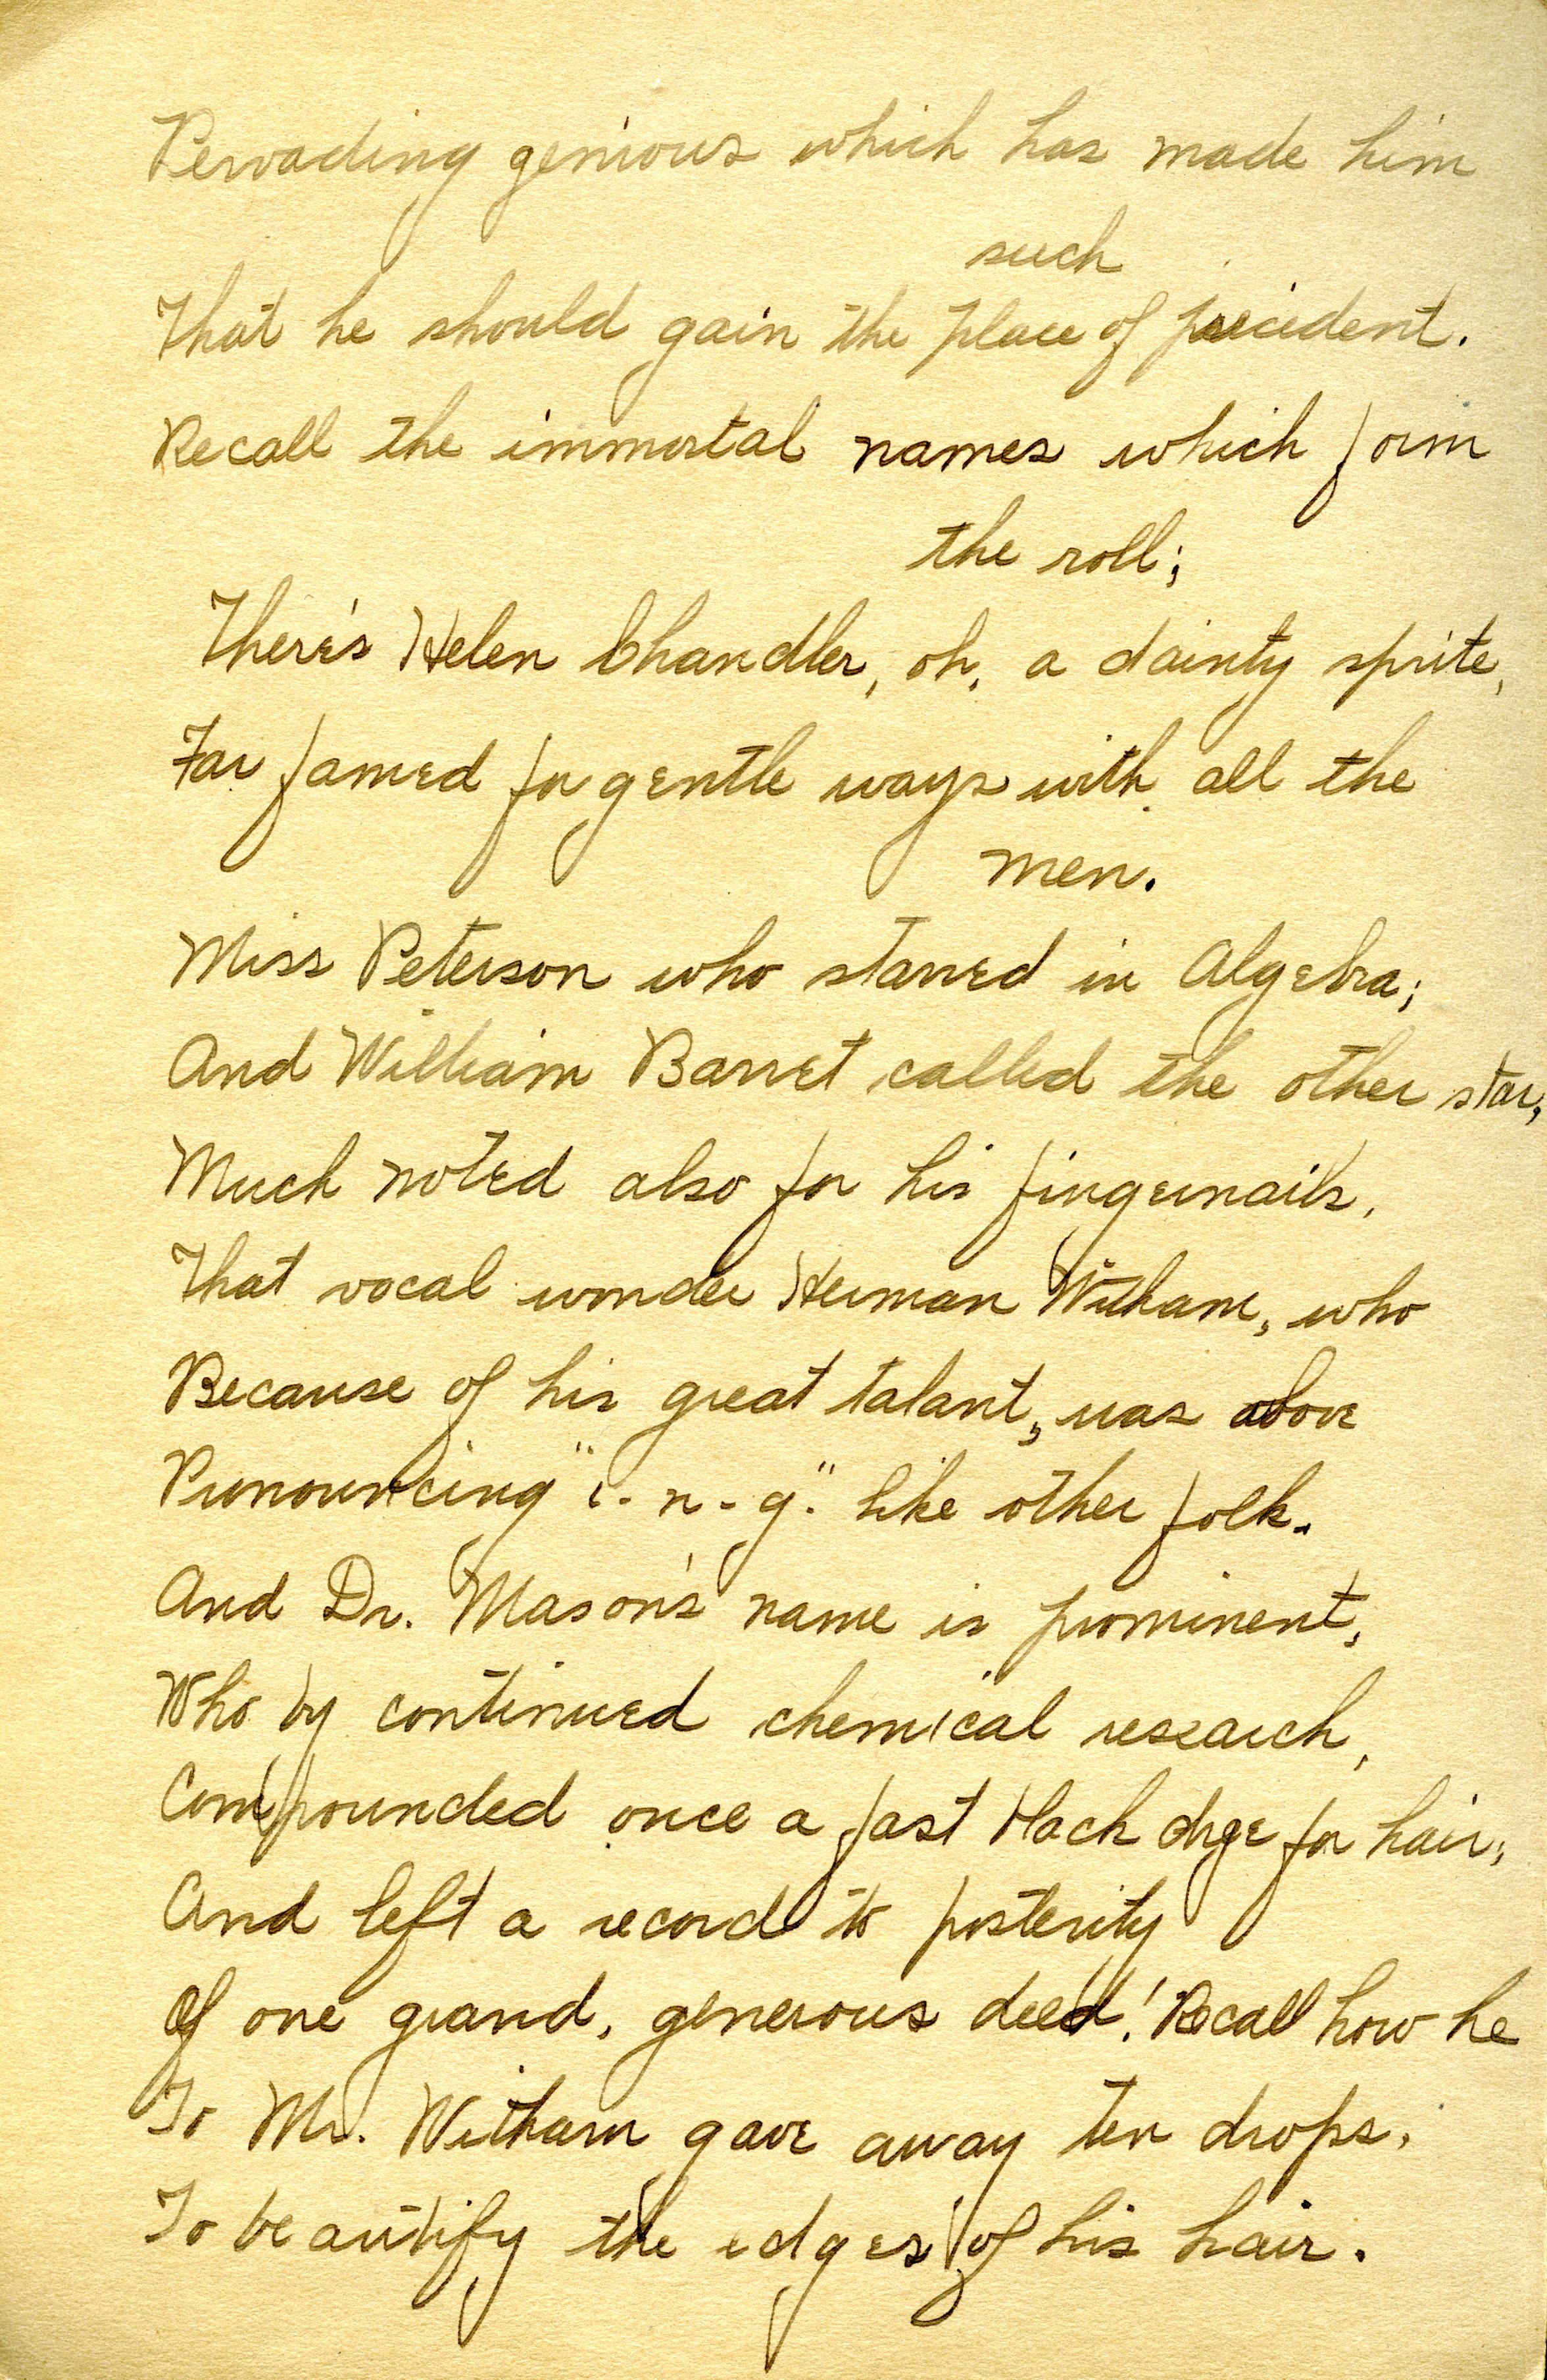 Pervading genious which has made him
such
That he should gain the place of precident.
Recall the immortal names which form
the roll;
There's Helen Chandler, oh, a dainty sprite,
Far famed for gentle ways with all the
men.
Miss Peterson who starred in Algebra;
And William Barret called the other star,
Much noted also for his fingernails,
That vocal wonder Herman Witham, who
Because of his great talant, was above
Pronouncing "i-n-g." like other folk.
And Dr. Mason's name is prominent,
Who by continued chemical research,
Compounded once a fast black dye for hair;
And left a record to posterity
Of one grand, generous deed! Recall how he
To Mr. Witham gave away ten drops,
To beautify the edges of his hair.